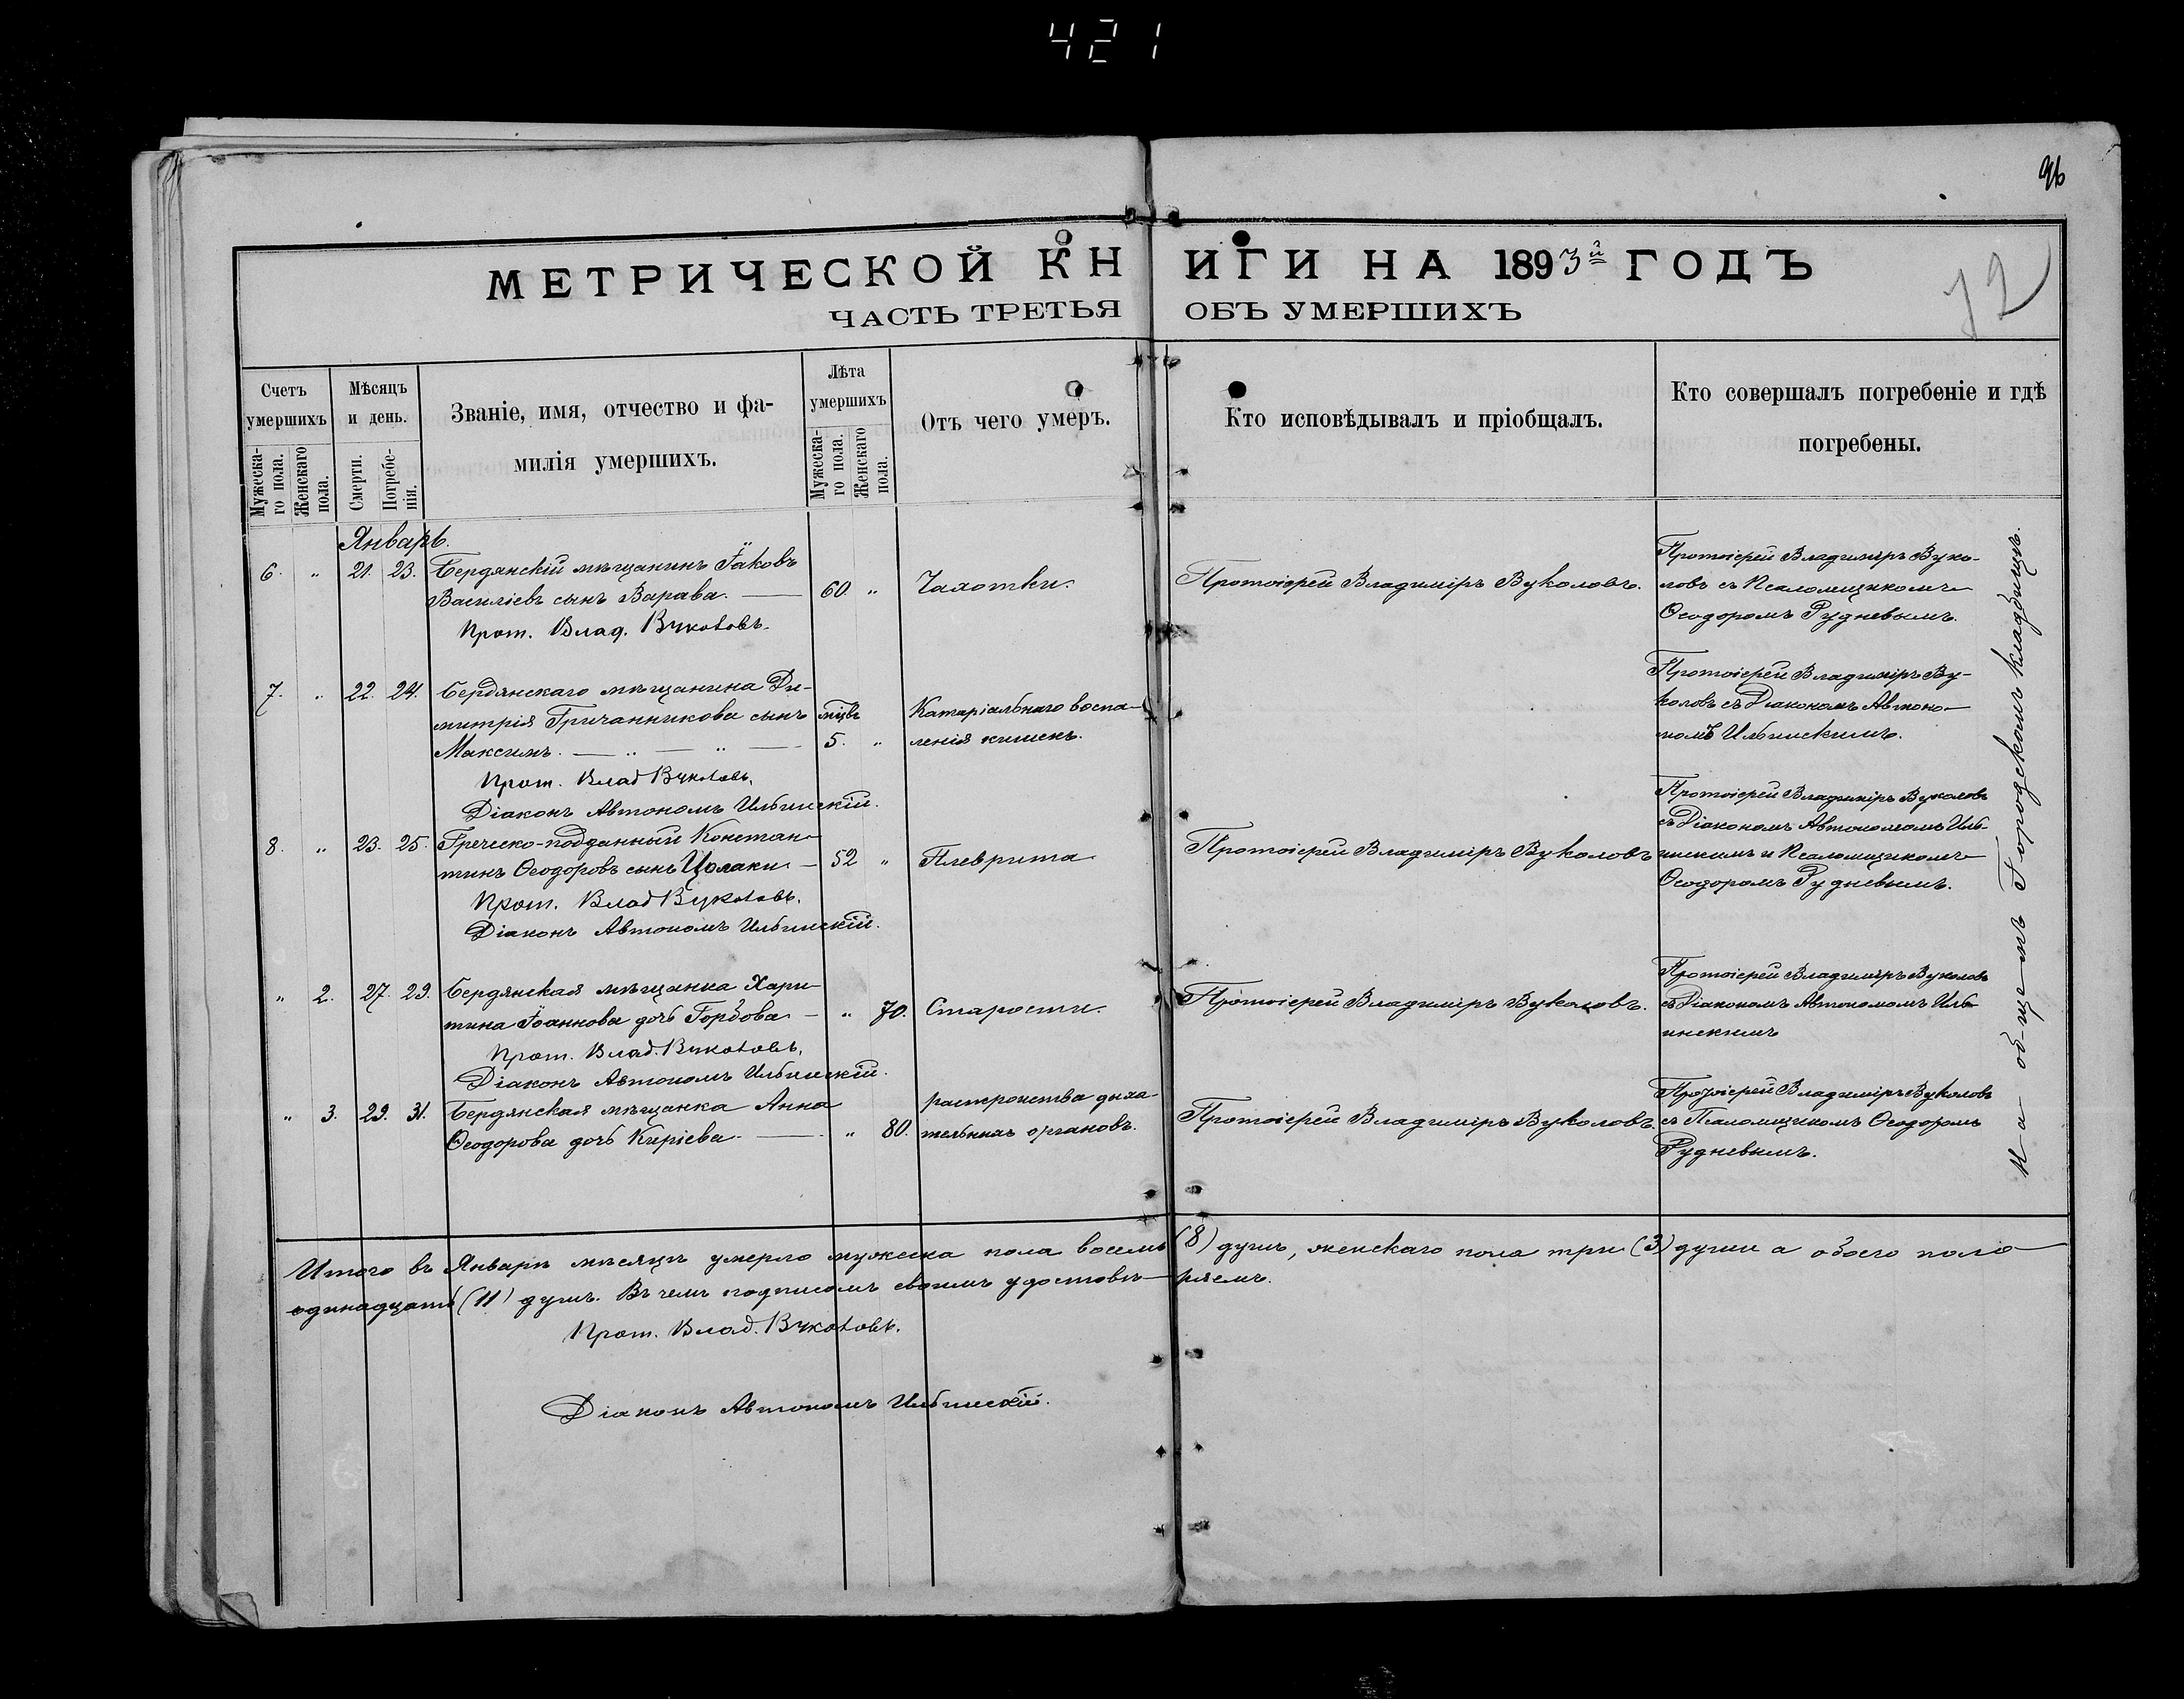 421
96
МЕТРИЧЕСКОЙ КНИГИ НА 1893й ГОДЪ
72
ЧАСТЬ ТРЕТЬЯ ОБЪ УМЕРШИХЪ
Счетъ умершихъ
Мужеска-го пола.
Женскаго пола.
Мѣсяцъ и день.
Смерти.
Погребе-нія.
Званіе, имя, отчество и фа-
милія умершихъ.
Лѣта умершихъ
Мужеска-го пола.
Женскаго пола.
Отъ чего умеръ.
Кто исповѣдывалъ и пріобщалъ.
Кто совершалъ погребеніе и гдѣ
погребены.
Январь.
6. " 21. 23. Бердянскій мѣщанинъ Іаковъ
Василіевъ сынъ Варава. — 60 " Чахотки.
Прот. Влад. Вуколовъ.
Протоіерей Владиміръ Вуколовъ.
Протоіерей Владиміръ Вуко-
ловъ съ Псаломщикомъ
Ѳеодоромъ Рудневымъ.
7. " 22. 24. Бердянскаго мѣщанина Ди-
митрія Гричанникова сынъ мѣцвъ Катаріальнаго воспа-
Максимъ. — " — " — 5. " ленія кишекъ.
Прот. Влад Вуколовъ.
Діаконъ Автономъ Ильинскій.
Протоіерей Владиміръ Ву-
коловъ съ Діакономъ Автоно-
момъ Ильинскимъ.
8. " 23. 25. Греческо-подданный Констан-
тинъ Ѳеодоровъ сынъ Цолаки — 52 " Плеврита
Прот. Влад Вуколовъ.
Діаконъ Автономъ Ильинскій.
Протоіерей Владиміръ Вуколовъ
Протоіерей Владиміръ Вуколовъ
съ Діакономъ Автономомъ Иль-
инскимъ и Псаломщикомъ
Ѳеодоромъ Рудневымъ.
" 2. 27. 29. Бердянская мѣщанка Хари-
тина Іоаннова дочь Горбова — " 70. Старости.
Прот. Влад. Вуколовъ.
Діаконъ Автономъ Ильинскій.
Протоіерей Владиміръ Вуколовъ.
Протоіерей Владиміръ Вуколовъ
съ Діакономъ Автономомъ Иль-
инскимъ
" 3. 29. 31. Бердянская мѣщанка Анна разстройства дыха-
Ѳеодорова дочь Киріева. — " 80. тельныхъ органовъ.
Протоіерей Владиміръ Вуколовъ.
Протоіерей Владиміръ Вуколовъ
съ Псаломщикомъ Ѳеодоромъ
Рудневымъ.
На общемъ Городскомъ кладбищѣ.
Итого въ Январѣ мѣсяцѣ умерло мужеска пола восемь (8) душъ, женскаго пола три (3) души а обоего пола
одинадцать (11) душъ. Въ чемъ подписомъ своимъ удостовѣ-ряемъ.
Прот. Влад. Вуколовъ.
Діаконъ Автономъ Ильинскій.